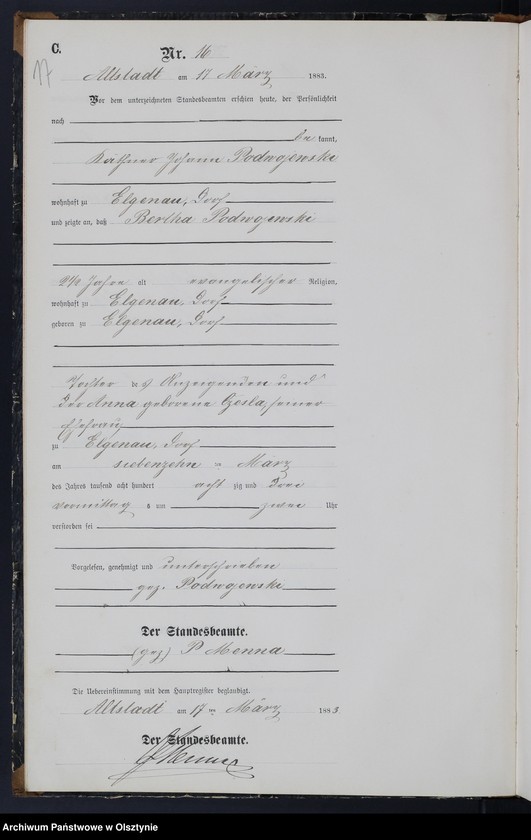 C.
Nr. 16
17
Altstadt am 17 März 1883.
Vor dem unterzeichneten Standesbeamten erschien heute, der Persönlichkeit
nach
be kannt,
Käthner Johann Podwojewski
wohnhaft zu Elgenau, Dorf
und zeigte an, daß Bertha Podwojewski
2 1/2 Jahre alt evangelischer Religion,
wohnhaft zu Elgenau, Dorf
geboren zu Elgenau, Dorf
Tochter des Anzeigenden und
der Anna geborene Czesla, seiner
Ehefrau
zu Elgenau, Dorf
am siebenzehn ten März
des Jahres tausend acht hundert acht zig und drei
Vormittag s um zwei Uhr
verstorben sei
Vorgelesen, genehmigt und unterschrieben
gez. Podwojewski
Der Standesbeamte.
(gez) P Menna
Die Uebereinstimmung mit dem Hauptregister beglaubigt.
Altstadt am 17 ten März 1883
Der Standesbeamte.
Menna
Archiwum Państwowe w Olsztynie